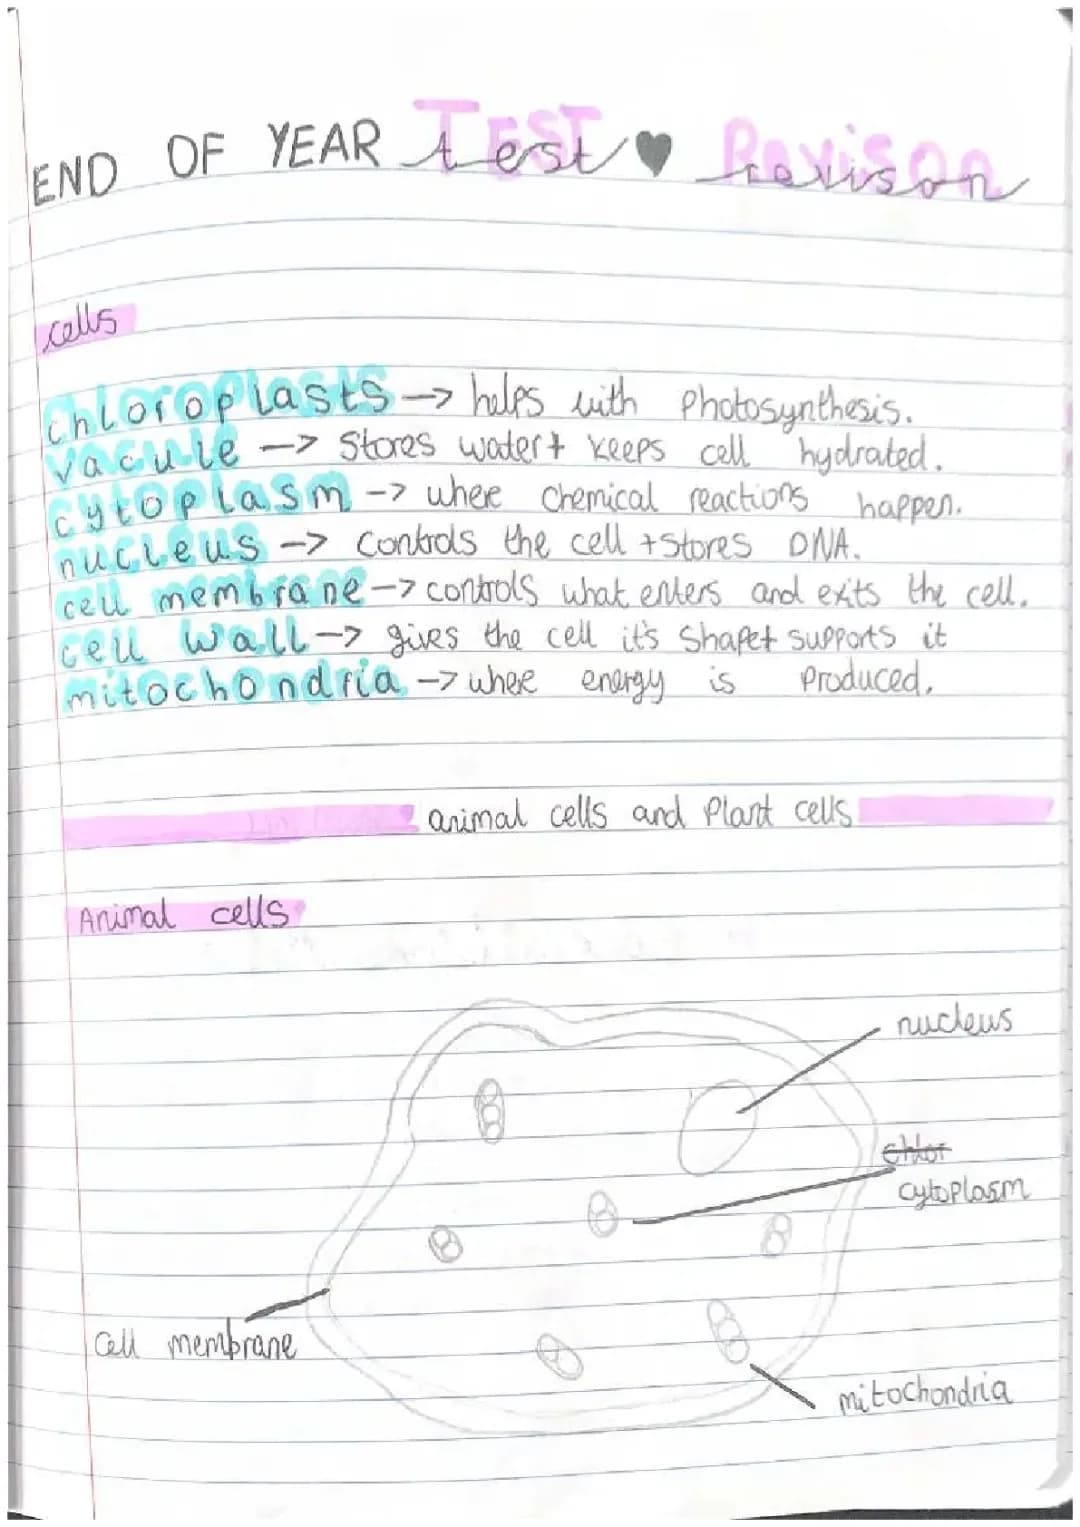 END OF YEAR test ♥ revison
cells
chloroplasts -> helps with photosynthesis.
vacule -> Stores water + keeps cell hydrated.
cytoplasm -> where chemical reactions happen.
nucleus -> controls the cell + stores DNA.
cell membrane -> controls what enters and exits the cell.
cell wall -> gives the cell it's shape + supports it
mitochondria -> where energy is produced.
animal cells and plant cells
Animal cells
nucleus
chlor
cytoplasm
cell membrane
mitochondria